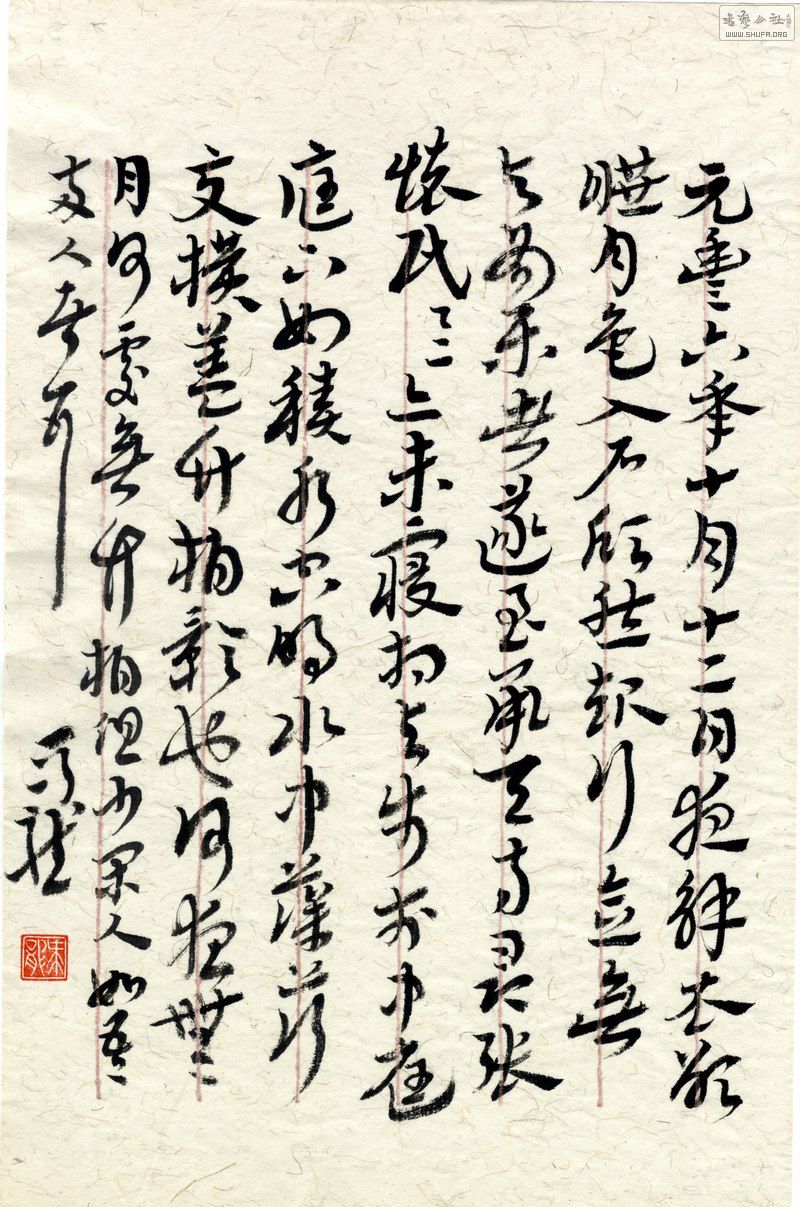 元豐六年十月十二日夜解衣欲
睡月色入戶欣然起行念無
与為樂者遂至承天寺尋張
懷民〻亦未寢相与步於中庭
庭下如積水空明水中藻荇
交橫蓋竹柏影也何夜無
月何處無竹柏但少閑人如吾
兩人者耳
書藝公社
WWW.SHUFA.ORG